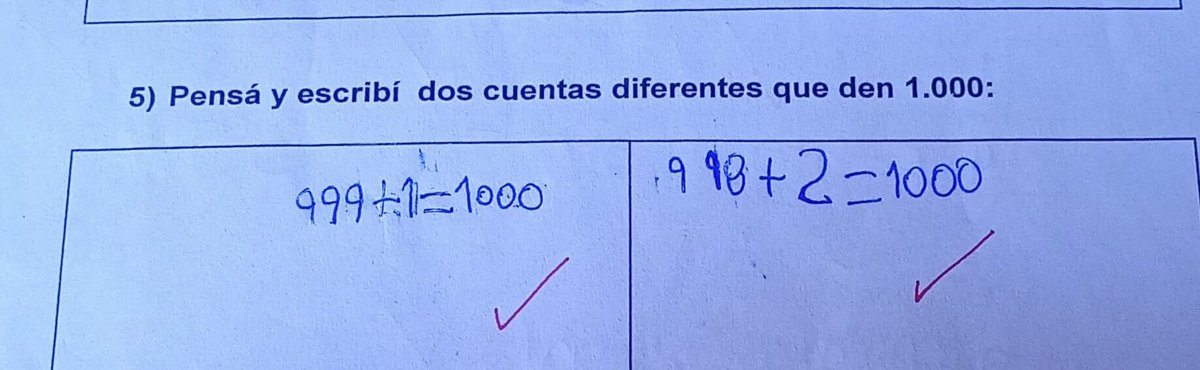 5) Pensá y escribí dos cuentas diferentes que den 1.000:
999+1=1000
998+2=1000